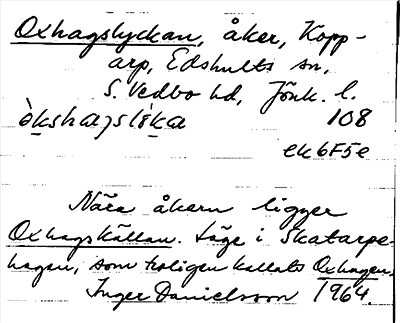 Oxhagslyckan, åker, Kopp-
arp, Edshults sn,
S. Vedbo hd, Jönk. l.
òkshaɡslỳka 108
ek 6F5e
Nära åkern ligger
Oxhagskällan. Läge i Skatarpe-
hagen, som troligen kallats Oxhagen.
Inger Danielsson 1964.